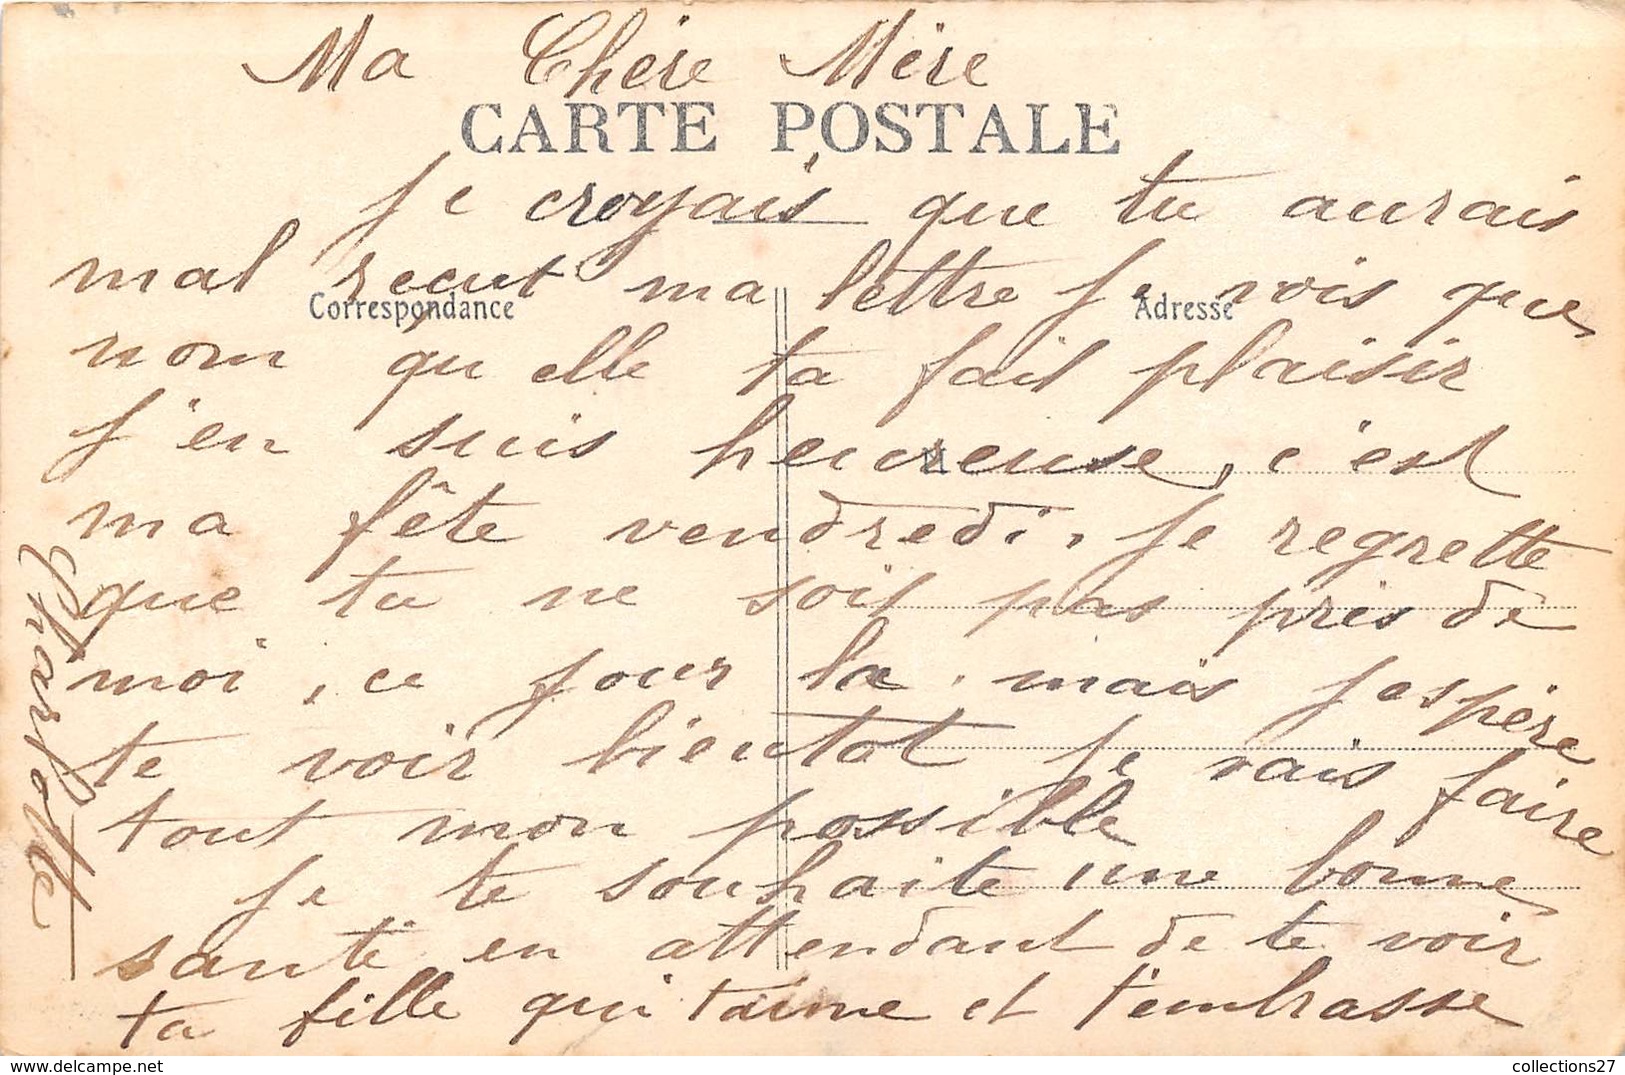 Ma Chère Mère
CARTE POSTALE
Je croyais que tu aurais
mal recut ma lettre Je vois que
Correspondance
Adresse
nom qu'elle ta fait plaisir
J'en suis heureuse, c'est
ma fête vendredi, Je regrette
que tu ne soit pas près de
moi, ce jour la. mais J'espère
te voir bientot Je vais faire
tout mon possible
Je te souhaite une bonne
santé en attendant de te voir
ta fille qui t'aime et t'embrasse
Charlotte
collections27